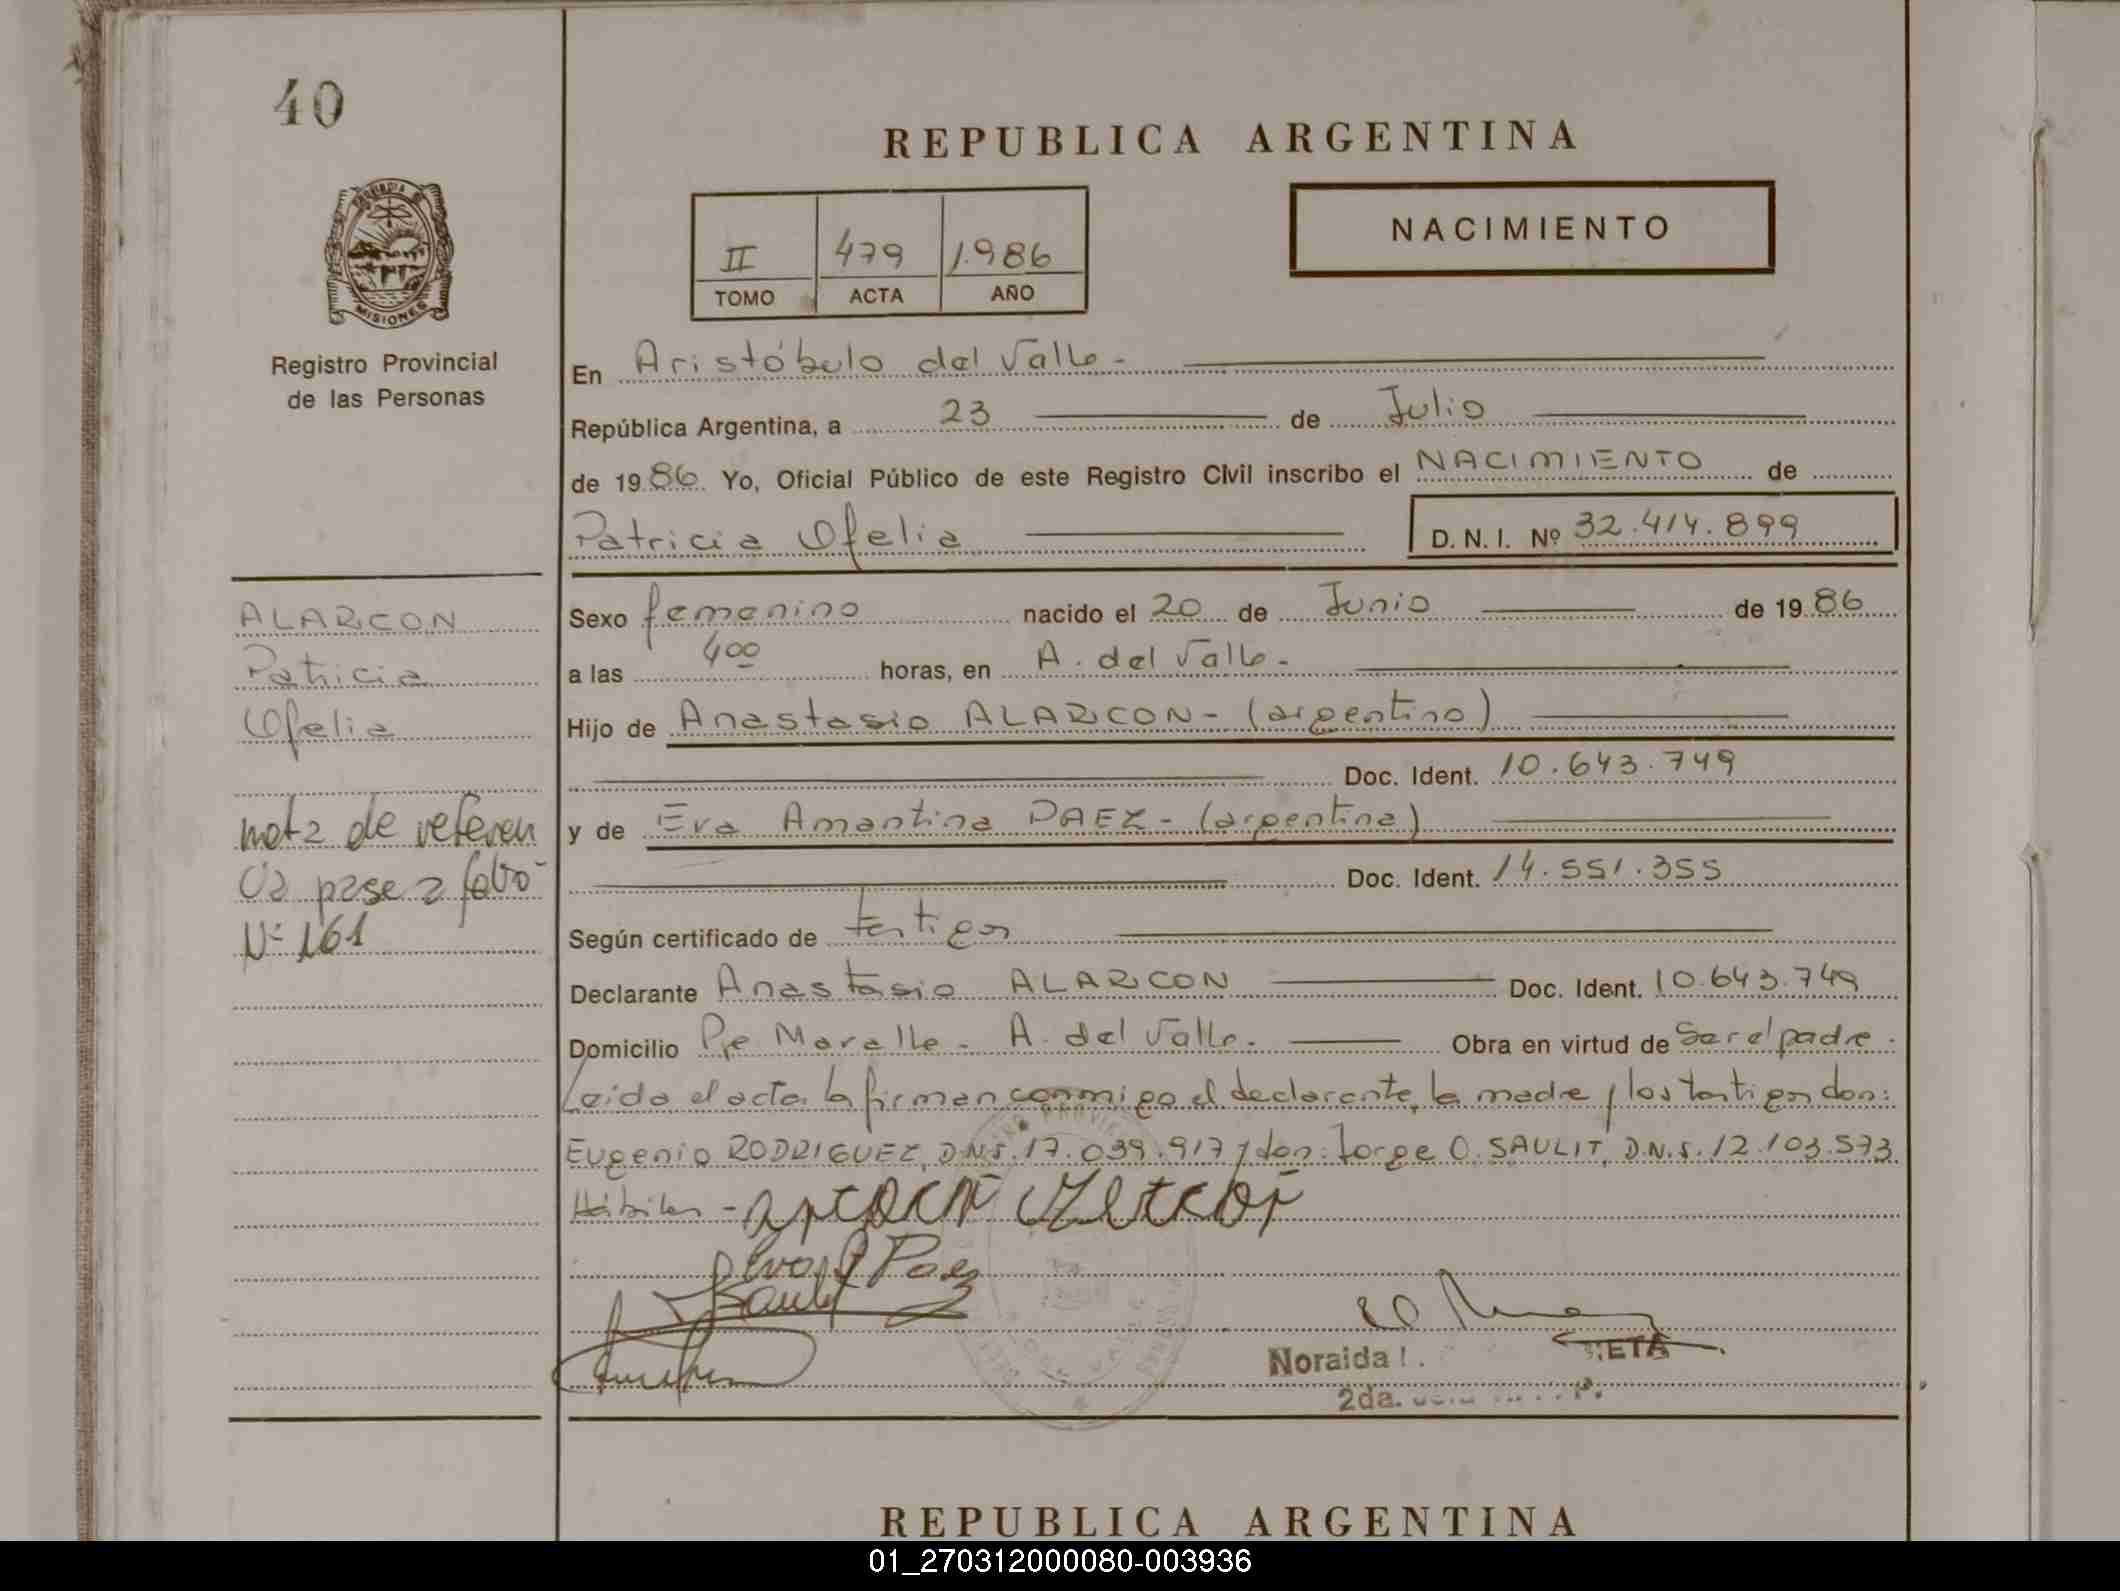 40
REPUBLICA ARGENTINA
NACIMIENTO
II 479 1.986
TOMO ACTA AÑO
PROVINCIA DE
MISIONES
Registro Provincial
de las Personas
En Aristóbulo del Valle.-
República Argentina, a 23 de Julio
de 1986. Yo, Oficial Público de este Registro Civil inscribo el NACIMIENTO de
Patricia Ofelia D. N. I. Nº 32.414.899
ALARCON
Patricia
Ofelia
nota de referen
cia pase a folio
Nº 161
Sexo femenino nacido el 20 de Junio de 1986
a las 4oo horas, en A. del Valle.
Hijo de Anastasio ALARCON - (argentino)
Doc. Ident. 10.643.749
y de Eva Amantina PAEZ - (argentina)
Doc. Ident. 14.551.355
Según certificado de testigos
Declarante Anastasio ALARCON Doc. Ident. 10.643.749
Domicilio Pje Maralle - A. del Valle. Obra en virtud de ser el padre.
Leida el acta la firman conmigo el declarante, la madre y los testigos don:
Eugenio RODRIGUEZ, D.N.I. 17.039.917 y don: Jorge O. SAULIT, D.N.I. 12.103.573
Hábiles -
Eva A Paez
Noraida I.
2da.
REPUBLICA ARGENTINA
01_270312000080-003936